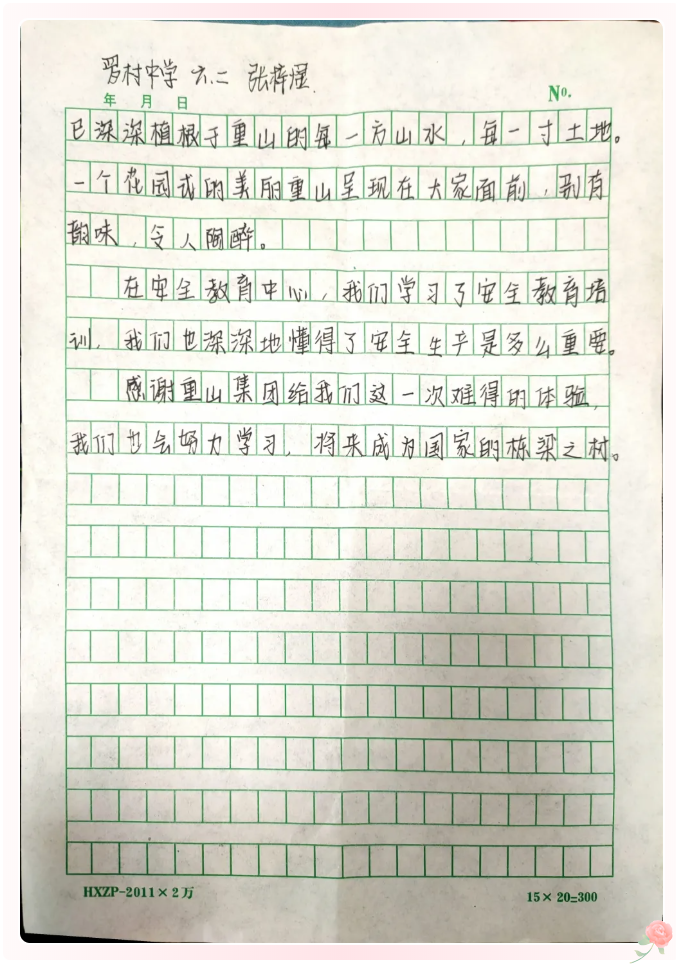 罗村中学 六.二 张梓煜.
年 月 日
No.
已深深植根于重山的每一方山水，每一寸土地。
一个花园式的美丽重山呈现在大家面前，别有
韵味，令人陶醉。
在安全教育中心，我们学习了安全教育培
训，我们也深深地懂得了安全生产是多么重要。
感谢重山集团给我们这一次难得的体验，
我们也会努力学习，将来成为国家的栋梁之材。
HXZP-2011×2万
15×20=300